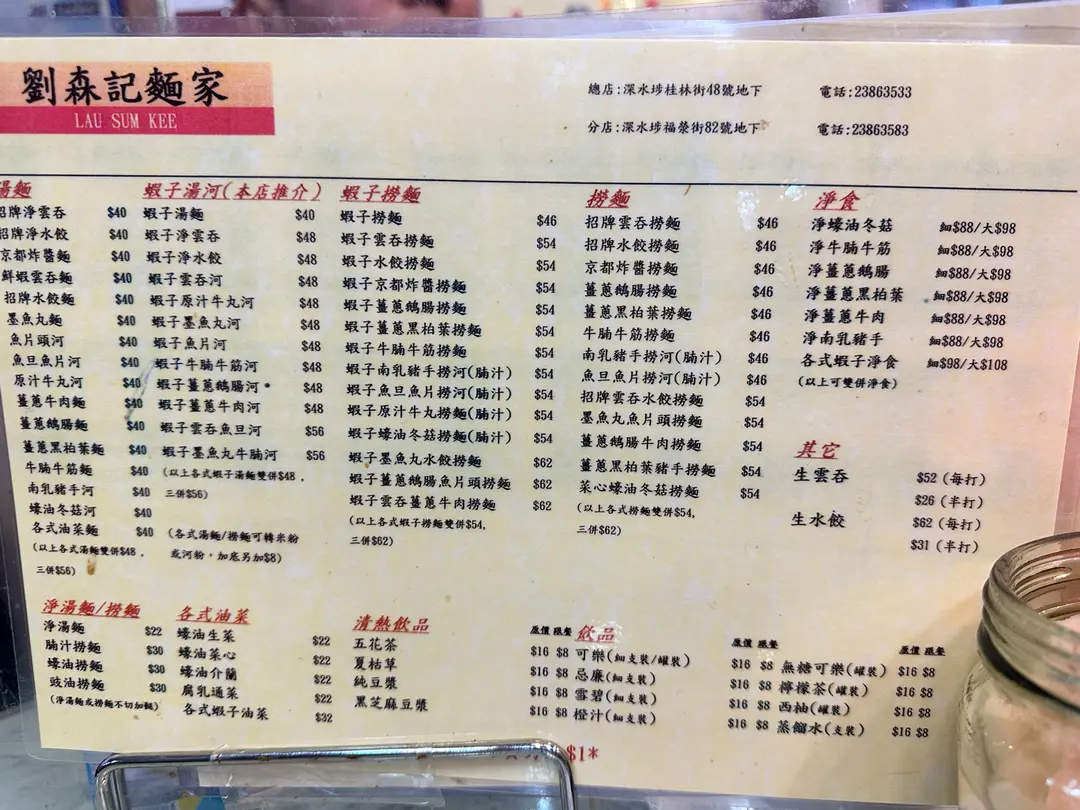 劉森記麵家
LAU SUM KEE
總店:深水埗桂林街48號地下 電話:23863533
分店:深水埗福榮街82號地下 電話:23863583
湯麵
招牌淨雲吞 $40
招牌淨水餃 $40
京都炸醬麵 $40
鮮蝦雲吞麵 $40
招牌水餃麵 $40
墨魚丸麵 $40
魚片頭河 $40
魚旦魚片河 $40
原汁牛丸河 $40
薑蔥牛肉麵 $40
薑蔥鵝腸麵 $40
薑蔥黑柏葉麵 $40
牛腩牛筋麵 $40
南乳豬手河 $40
蠔油冬菇河 $40
各式油菜麵 $40
(以上各式湯麵雙併$48,
三併$56)
蝦子湯河(本店推介)
蝦子湯麵 $40
蝦子淨雲吞 $48
蝦子淨水餃 $48
蝦子雲吞河 $48
蝦子原汁牛丸河 $48
蝦子墨魚丸河 $48
蝦子魚片河 $48
蝦子牛腩牛筋河 $48
蝦子薑蔥鵝腸河 $48
蝦子薑蔥牛肉河 $48
蝦子雲吞魚旦河 $56
蝦子墨魚丸牛腩河 $56
(以上各式蝦子湯麵雙併$48,
三併$56)
(各式湯麵/撈麵可轉米粉
或河粉,加底另加$8)
蝦子撈麵
蝦子撈麵 $46
蝦子雲吞撈麵 $54
蝦子水餃撈麵 $54
蝦子京都炸醬撈麵 $54
蝦子薑蔥鵝腸撈麵 $54
蝦子薑蔥黑柏葉撈麵 $54
蝦子牛腩牛筋撈麵 $54
蝦子南乳豬手撈河(腩汁) $54
蝦子魚旦魚片撈河(腩汁) $54
蝦子原汁牛丸撈麵(腩汁) $54
蝦子蠔油冬菇撈麵(腩汁) $54
蝦子墨魚丸水餃撈麵 $62
蝦子薑蔥鵝腸魚片頭撈麵 $62
蝦子雲吞薑蔥牛肉撈麵 $62
(以上各式蝦子撈麵雙併$54,
三併$62)
撈麵
招牌雲吞撈麵 $46
招牌水餃撈麵 $46
京都炸醬撈麵 $46
薑蔥鵝腸撈麵 $46
薑蔥黑柏葉撈麵 $46
牛腩牛筋撈麵 $46
南乳豬手撈河(腩汁) $46
魚旦魚片撈河(腩汁) $46
招牌雲吞水餃撈麵 $54
墨魚丸魚片頭撈麵 $54
薑蔥鵝腸牛肉撈麵 $54
薑蔥黑柏葉豬手撈麵 $54
菜心蠔油冬菇撈麵 $54
(以上各式撈麵雙併$54,
三併$62)
淨食
淨蠔油冬菇 細$88/大$98
淨牛腩牛筋 細$88/大$98
淨薑蔥鵝腸 細$88/大$98
淨薑蔥黑柏葉 細$88/大$98
淨薑蔥牛肉 細$88/大$98
淨南乳豬手 細$88/大$98
各式蝦子淨食 細$98/大$108
(以上可雙併淨食)
其它
生雲吞 $52(每打)
$26(半打)
生水餃 $62(每打)
$31(半打)
淨湯麵/撈麵
淨湯麵 $22
腩汁撈麵 $30
蠔油撈麵 $30
豉油撈麵 $30
(淨湯麵或撈麵不切加餸)
各式油菜
蠔油生菜 $22
蠔油菜心 $22
蠔油介蘭 $22
腐乳通菜 $22
各式蝦子油菜 $32
清熱飲品 原價 跟餐
五花茶 $16 $8
夏枯草 $16 $8
純豆漿 $16 $8
黑芝麻豆漿 $16 $8
飲品 原價 跟餐
可樂(細支裝/罐裝) $16 $8
忌廉(細支裝) $16 $8
雪碧(細支裝) $16 $8
橙汁(細支裝) $16 $8
原價 跟餐
無糖可樂(罐裝) $16 $8
檸檬茶(罐裝) $16 $8
西柚(罐裝) $16 $8
蒸餾水(支裝) $16 $8
$1*